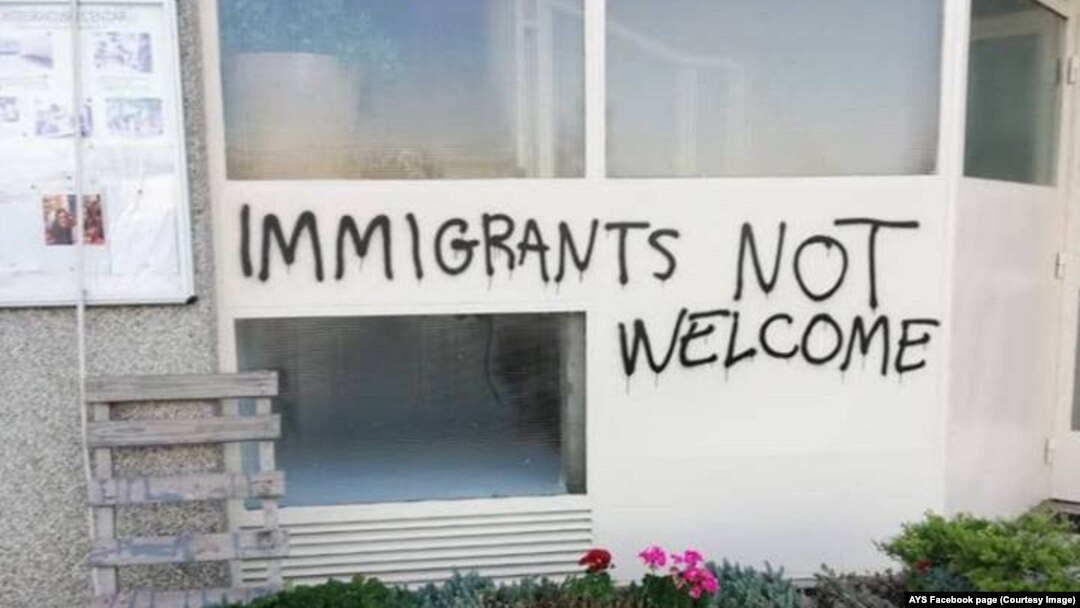 INTEGRACIJSKI CENTAR
IMMIGRANTS NOT
WELCOME
AYS Facebook page (Courtesy Image)